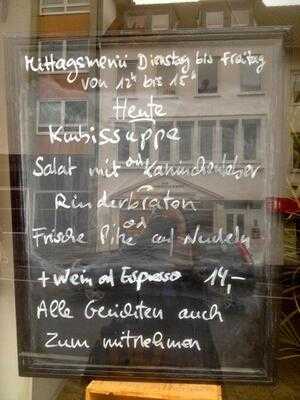 Mittagsmenü Dienstag bis Freitag
von 12°° bis 15°°
Heute
Kürbissuppe
od
Salat mit Kaninchenleber
Rinderbraten
od
Frische Pilze auf Nudeln
+ Wein od Espresso 14,-
Alle Gerichten auch
Zum mitnehmen